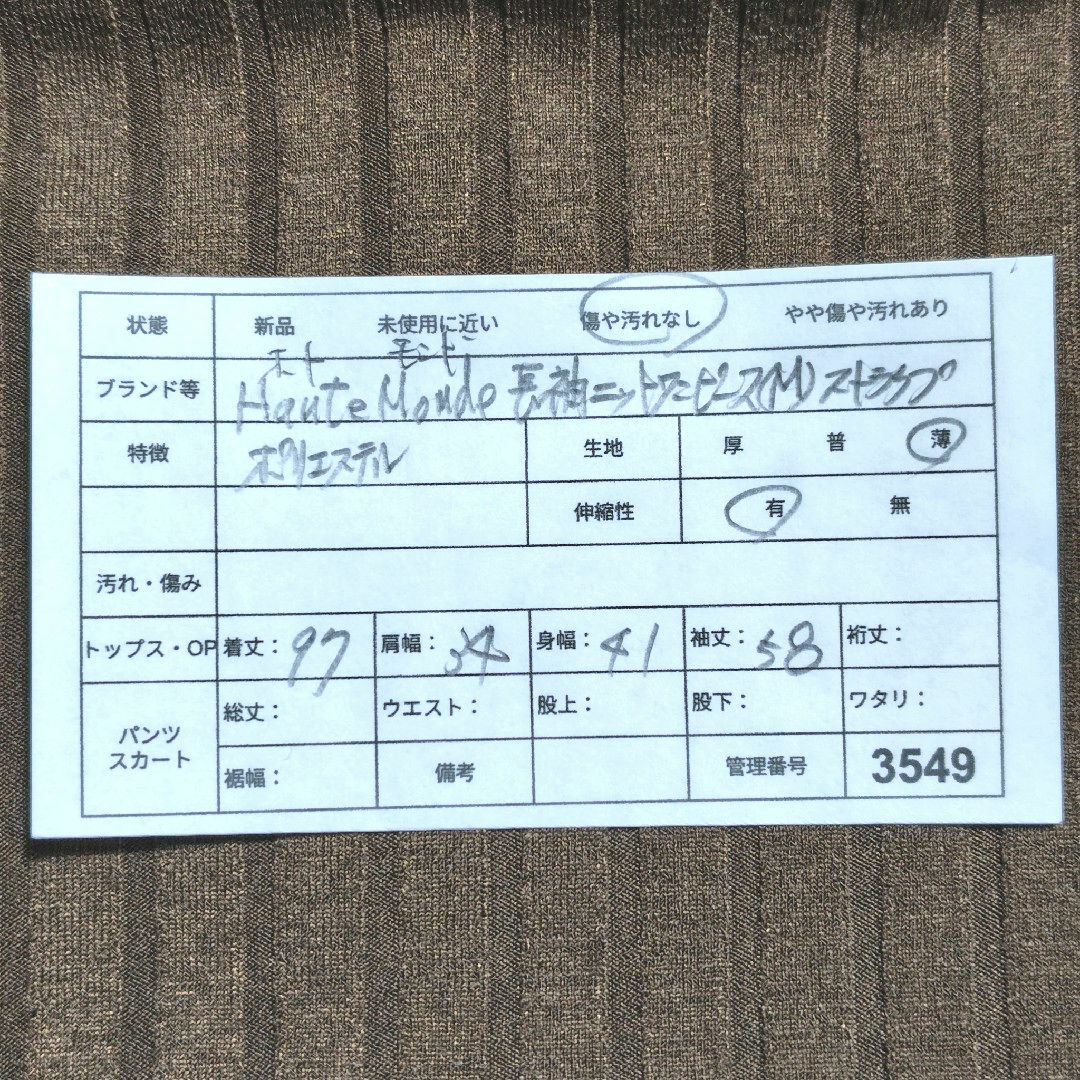 状態 新品 未使用に近い 傷や汚れなし やや傷や汚れあり
ホト モンド
ブランド等 Haute Monde 長袖ニットワンピース(M) ストラップ
特徴 ポリエステル 生地 厚 普 薄
伸縮性 有 無
汚れ・傷み
トップス・OP 着丈: 97 肩幅: 34 身幅: 41 袖丈: 58 裄丈:
パンツ 総丈: ウエスト: 股上: 股下: ワタリ:
スカート 裾幅: 備考 管理番号 3549